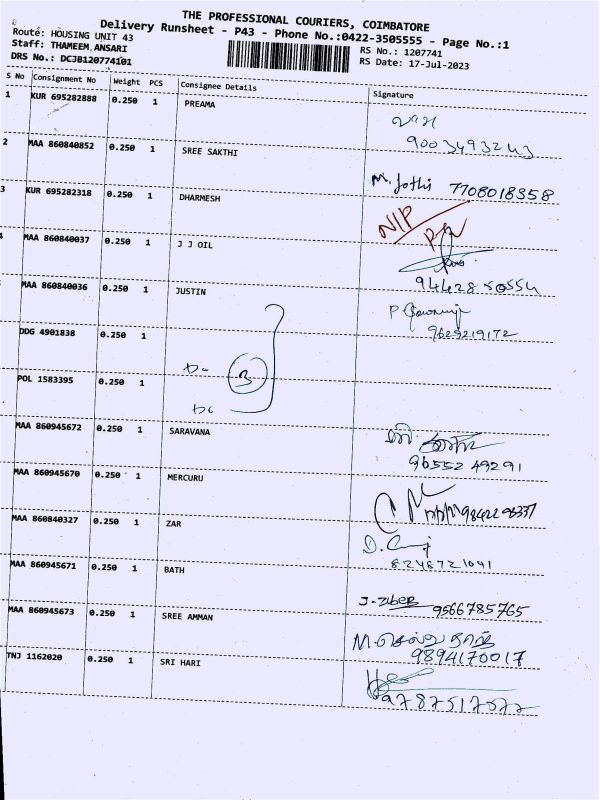 THE PROFESSIONAL COURIERS, COIMBATORE
Delivery Runsheet - P43 - Phone No.:0422-3505555 - Page No.:1
Route: HOUSING UNIT 43
Staff: THAMEEM ANSARI
RS No.: 1207741
DRS No.: DCJB120774101
RS Date: 17-Jul-2023
S No Consignment No Weight PCS Consignee Details Signature
1 KUR 695282888 0.250 1 PREAMA
9003493243
2 MAA 860840852 0.250 1 SREE SAKTHI
M. Jothi 7708018358
3 KUR 695282318 0.250 1 DHARMESH
N/P
MAA 860840037 0.250 1 J J OIL
MAA 860840036 0.250 1 JUSTIN
9629219172
DDG 4901838 0.250 1
3
POL 1583395 0.250 1
MAA 860945672 0.250 1 SARAVANA
9655249291
MAA 860945670 0.250 1 MERCURU
MAA 860840327 0.250 1 ZAR
8248721041
MAA 860945671 0.250 1 BATH
J. ZUBER 9566785765
MAA 860945673 0.250 1 SREE AMMAN
9894170017
TNJ 1162020 0.250 1 SRI HARI
9787517572